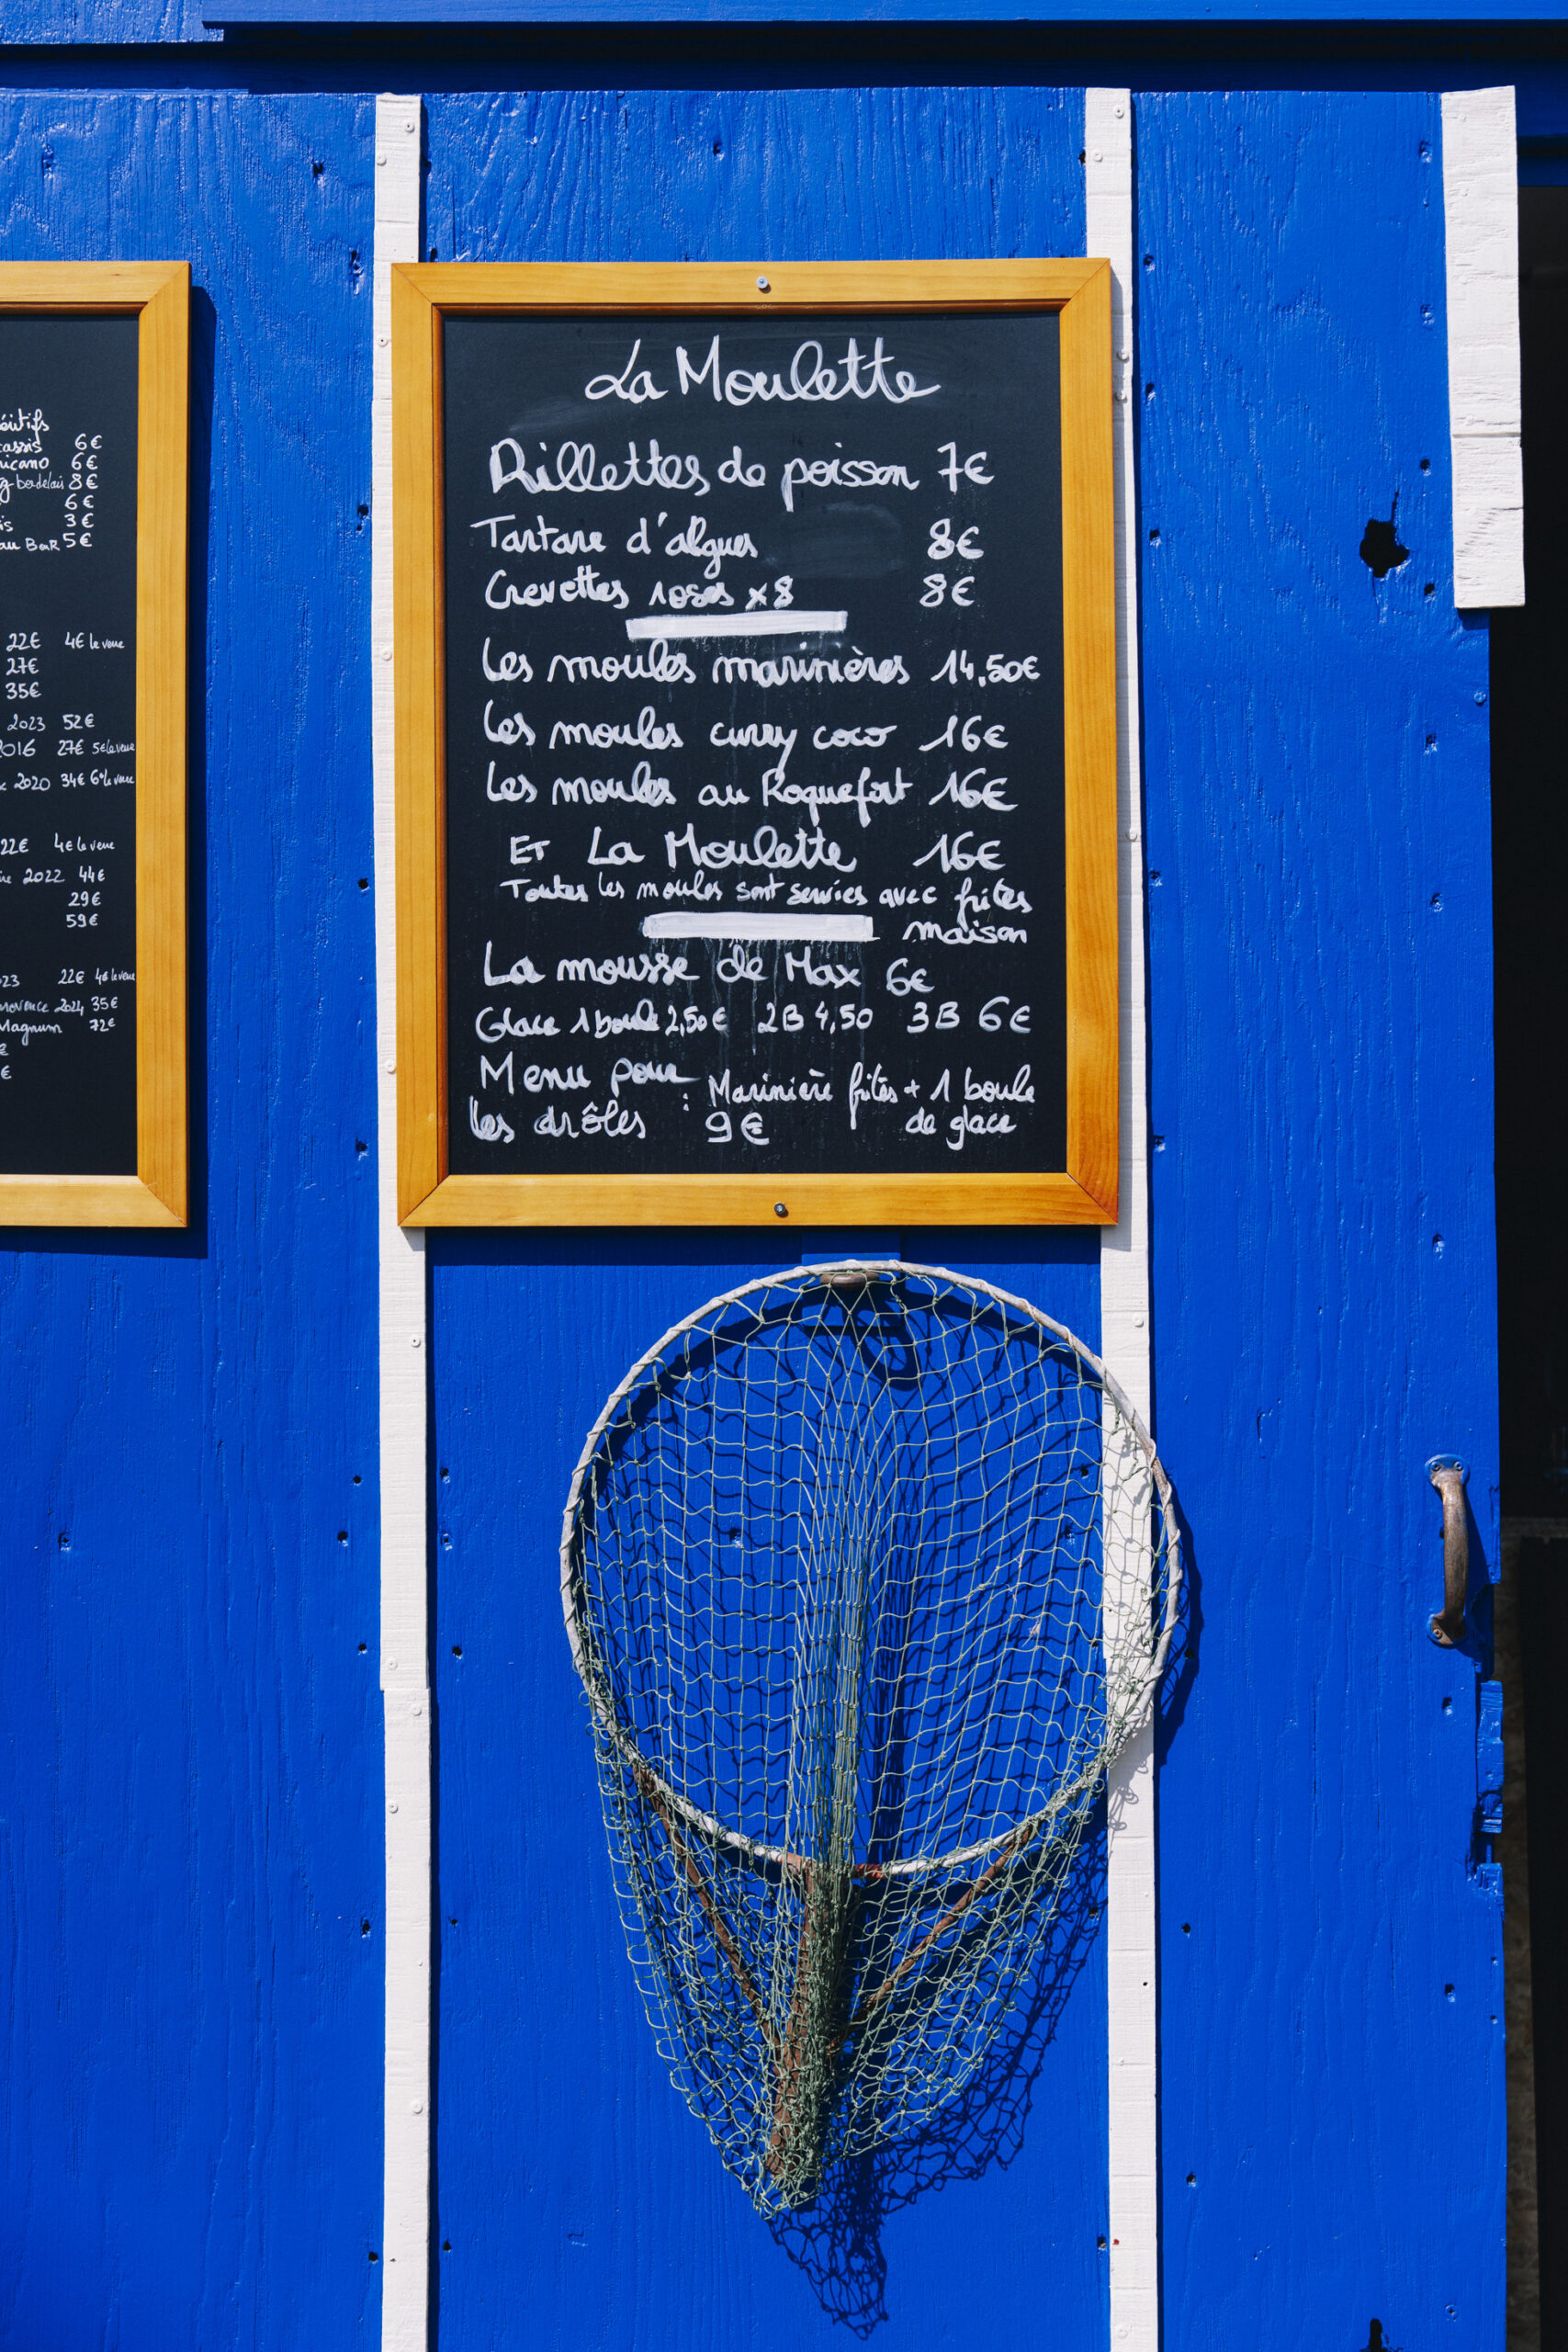 éritifs
cassis 6€
ricano 6€
g-bordelais 8€
6€
is 3€
au BaR 5€
22€ 4€ le verre
27€
35€
2023 52€
2016 27€ 5€ le verre
2020 34€ 6€ le verre
22€ 4€ le verre
2022 44€
29€
59€
23 22€ 4€ le verre
rovence 2024 35€
Magnum 72€
€
€
La Moulette
Rillettes de poisson 7€
Tartare d'algues 8€
Crevettes roses x8 8€
Les moules marinières 14,50€
Les moules curry coco 16€
Les moules au Roquefort 16€
ET La Moulette 16€
Toutes les moules sont servies avec frites
maison
La mousse de Max 6€
Glace 1 boule 2,50€ 2B 4,50 3B 6€
Menu pour : Marinière frites + 1 boule
les drôles 9€ de glace